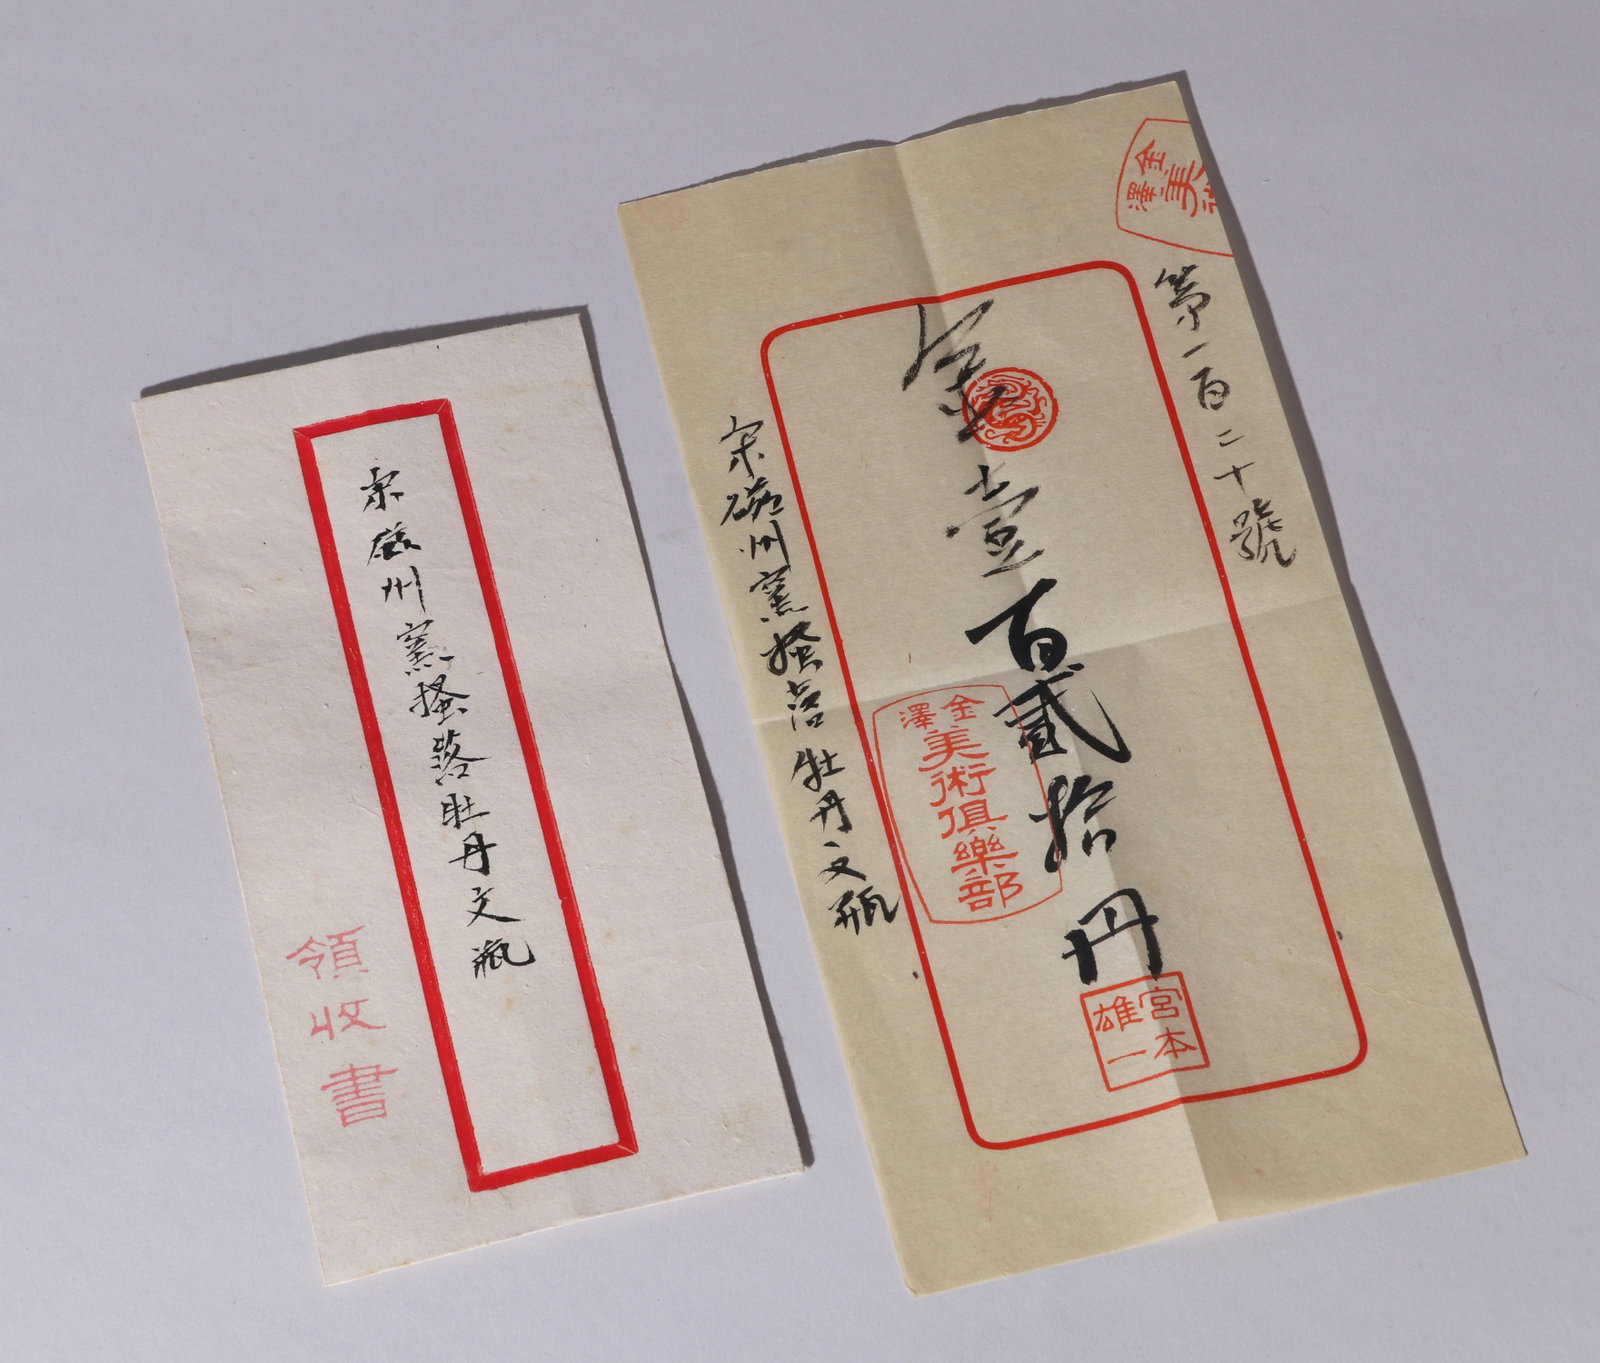 宋磁州窯掻落牡丹文瓶
領收書
金澤
美
第一百二十號
金壹百貳拾円
宮本
雄一
金澤
美術俱樂部
宋磁州窯掻落牡丹文瓶